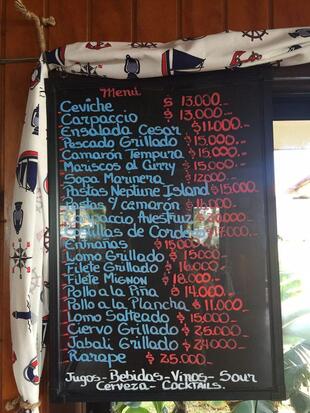 Menú
Ceviche $ 13.000.-
Carpaccio $ 13.000.-
Ensalada Cesar $11.000.-
Pescado Grillado $15.000.-
Camarón Tempura $15.000.-
Mariscos al Curry $15.000.-
Sopa Marinera $12000.-
Pastas Neptune Island $15.000.-
Pastas y camarón $16.000.-
Carpaccio Avestruz
Entrañas $15000.-
Lomo Grillado $15000.-
Filete Grillado $16.000.-
Filete Mignon $18.000.-
Pollo a la Piña $14.000.-
Pollo a la Plancha $11.000
Lomo Salteado $15000.-
Ciervo Grillado $25.000.-
Jabali Grillado $24.000.-
Rarape $25.000.-
Jugos-Bebidas-Vinos-Sour
Cerveza-Cocktails.